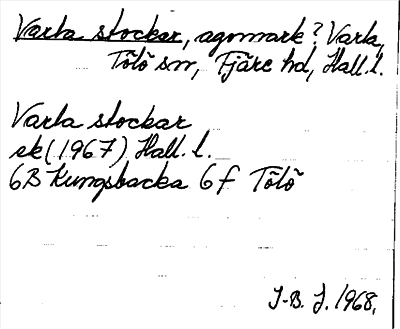 Varla stockar, ägomark? Varla,
Tölö sn, Fjäre hd, Hall. l.
Varla stockar
ek (1967) Hall. l.
6B Kungsbacka 6f Tölö
I-B. J. 1968.